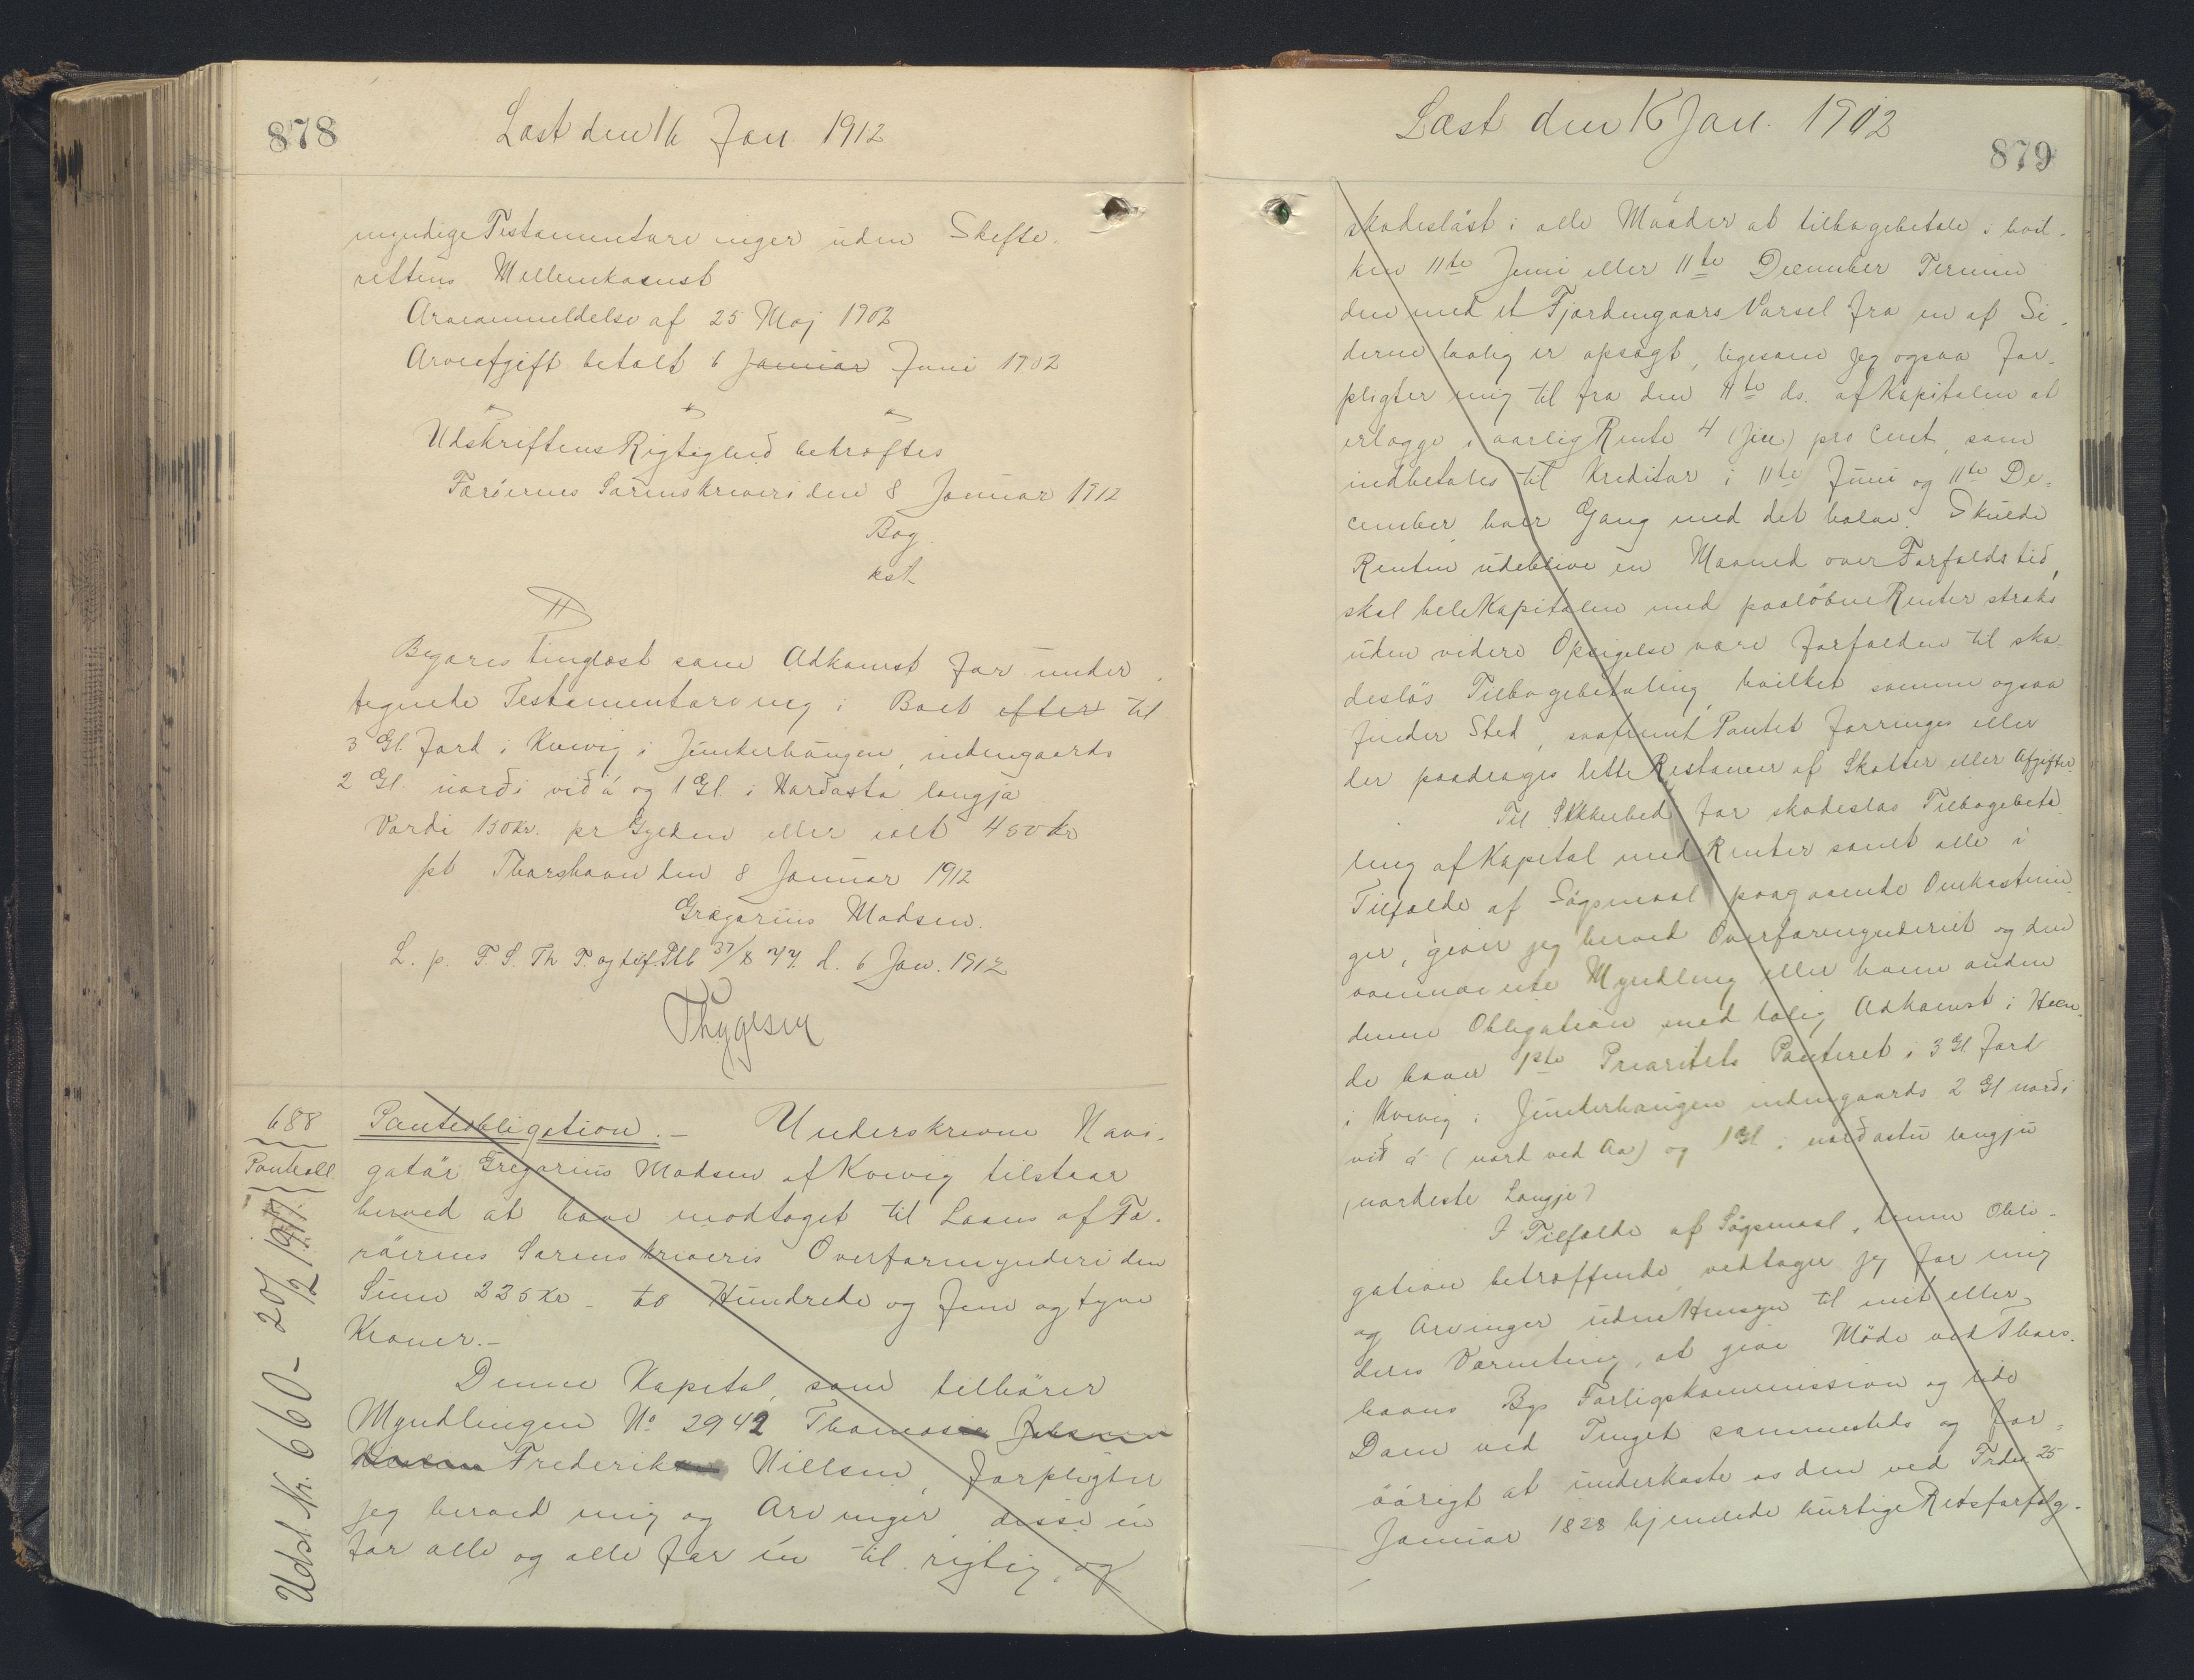 878
Læst den 16 Jan 1912
myndige Testamentarvinger uden Skifte-
rettens Mellemkomst
Arveanmeldelse af 25 Maj 1902
Arveafgift betalt 6 Januar Juni 1902
Udskriftens Rigtighed bekræftes
Færöernes Sorenskriveri den 8 Januar 1912
Bog
kst
Begæres tinglæst som Adkomst for under
tegnede Testamentarving i Boet efter til
3 Gl. Jord i Kvivig i Junkerhaugen, indengaards
2 Gl. norði við á og 1 Gl i Norðasta longja
Værdi 150 Kr. pr Gylden eller ialt 450 Kr
pt Thorshavn den 8 Januar 1912
Gregorius Madsen.
L. p. F. S. Th T. og 37/8 77. d. 6 Jan. 1912
Thygesen
688
Panteobligation.- Underskrevne Navi-
gatör Gregorius Madsen af Kvivig tilstaar
herved at have modtaget til Laans af Fæ-
röernes Sorenskriveris Overformynderi den
Sum 225 Kr - to Hundrede og fem og tyve
Kroner.-
Denne Kapital, som tilhörer
Myndlingen No 2942 Thomas
Frederik Nielsen, forpligter
jeg herved mig og Arvinger disse én
for alle og alle for én til rigtig, og
Udsl. Nr. 660 - 20/2 1917
Læst den 16 Jan. 1902
879
skadeslöst i alle Maader at tilbagebetale i hvil-
ken 11te Juni eller 11te December Termin
den med et Fjerdingaars Varsel fra en af Si-
derne lovlig er opsagt, ligesom jeg ogsaa for-
pligter mig til fra den 11te ds. af Kapitalen at
erlægge i aarlig Rente 4 (fire) pro Cent, som
indbetales til Kreditor i 11te Juni og 11te De-
cember, hver Gang med det halve. Skulde
Renten udeblive en Maaned over Forfaldstid,
skal hele Kapitalen med paalöbne Renter straks
uden videre Opsigelse være forfalden til ska-
deslös Tilbagebetaling, hvilket samme ogsaa
finder Sted, saafremt Pantet forringes eller
der paadrages dette Restancer af Skatter eller Afgifter.
Til Sikkerhed for skadeslös Tilbagebeta-
ling af Kapital med Renter samt alle i
Tilfælde af Sögsmaal paagaaende Omkostnin-
ger, giver jeg herved Overformynderiet og den
ovennævnte Myndling eller hvem anden
denne Obligation med lovlig Adkomst i Hæn-
de haver 1ste Prioritets Panteret i 3 Gl Jord
i Kvivig i Junkerhaugen indengaards 2 Gl norði
við á (nord ved Aa) og 1 Gl i norðastu longju
(nordeste Longje)
I Tilfælde af Sögsmaal, denne Obli-
gation betræffende vedtager jeg for mig
og Arvinger uden Hensyn til mit eller
deres Værneting, at give Möde ved Thors-
havns Bys Forligskommission og lide
Dom ved Tinget sammesteds og for-
övrigt at underkaste os den ved Frdn 25
Januar 1828 hjemlede hurtige Retsforfölg-